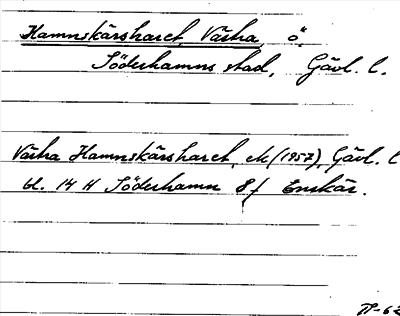 Hamnskärsharet, Västra, ö,
Söderhamns stad, Gävl. l.
Västra Hamnskärsharet, ek (1957), Gävl. l
bl. 14 H Söderhamn 8 f Enskär.